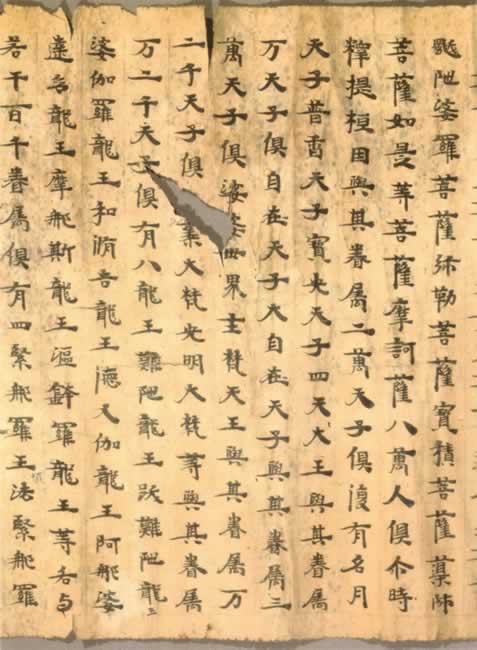 颰陁婆羅菩薩弥勒菩薩寶積菩薩藥師
菩薩如是等菩薩摩訶薩八萬人俱尒時
釋提桓因與其眷属二萬天子俱復有名月
天子普香天子寶光天子四天大王與其眷属
万天子俱自在天子大自在天子與其眷属三
萬天子俱娑婆世界主梵天王與其眷属万
二千天子俱棄大梵光明大梵等與其眷属
万二千天子俱有八龍王難陁龍王跋難陁龍
娑伽羅龍王和脩吉龍王德叉伽龍王阿那婆
達多龍王摩那斯龍王漚鉢羅龍王等各与
若干百千眷属俱有四緊那羅王法緊那羅